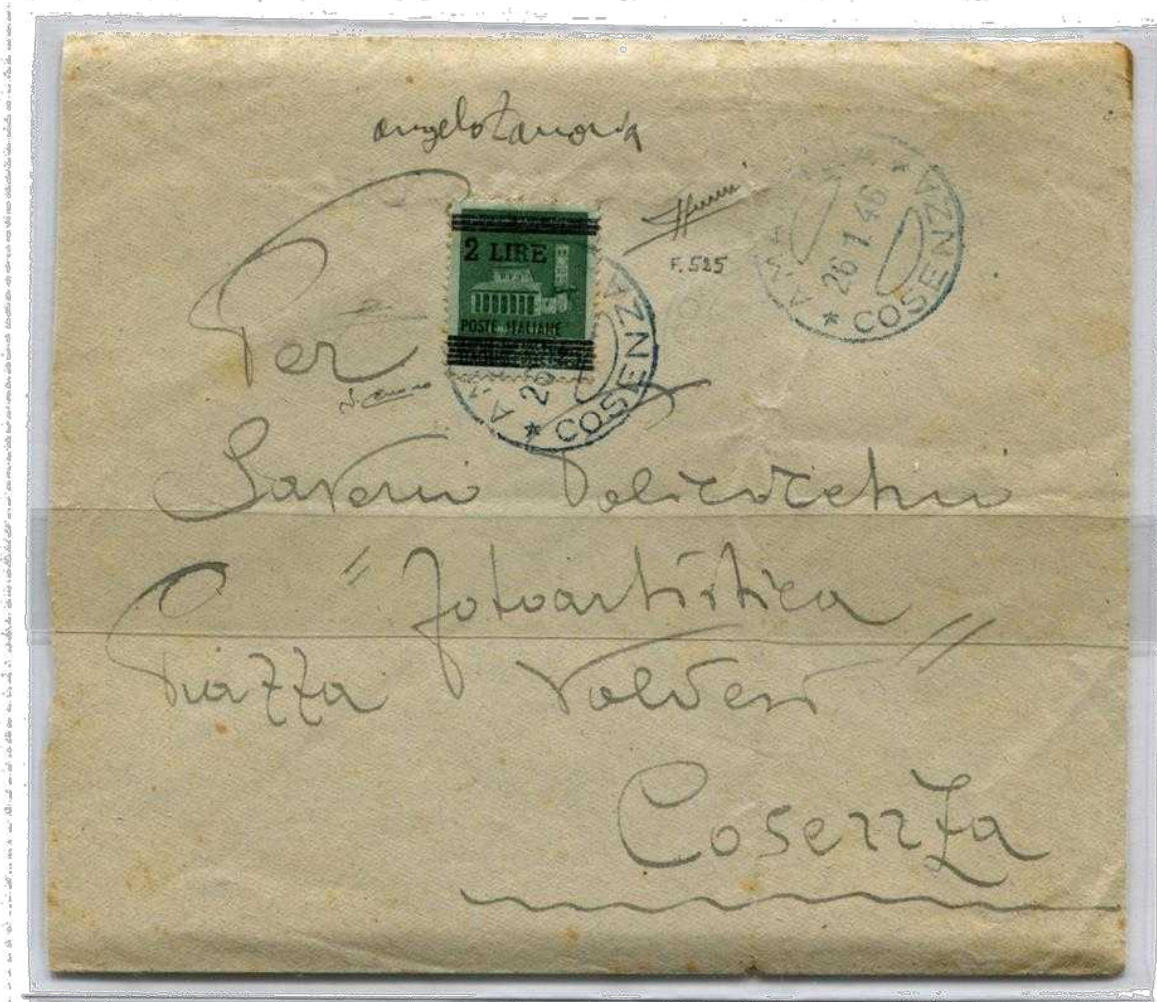 angelo Zanaria
F.525
2 LIRE
POSTE ITALIANE
26 1 46
* COSENZA *
26
* COSENZA
Per
Saverio
"fotoartistica"
Piazza Valdesi
Cosenza